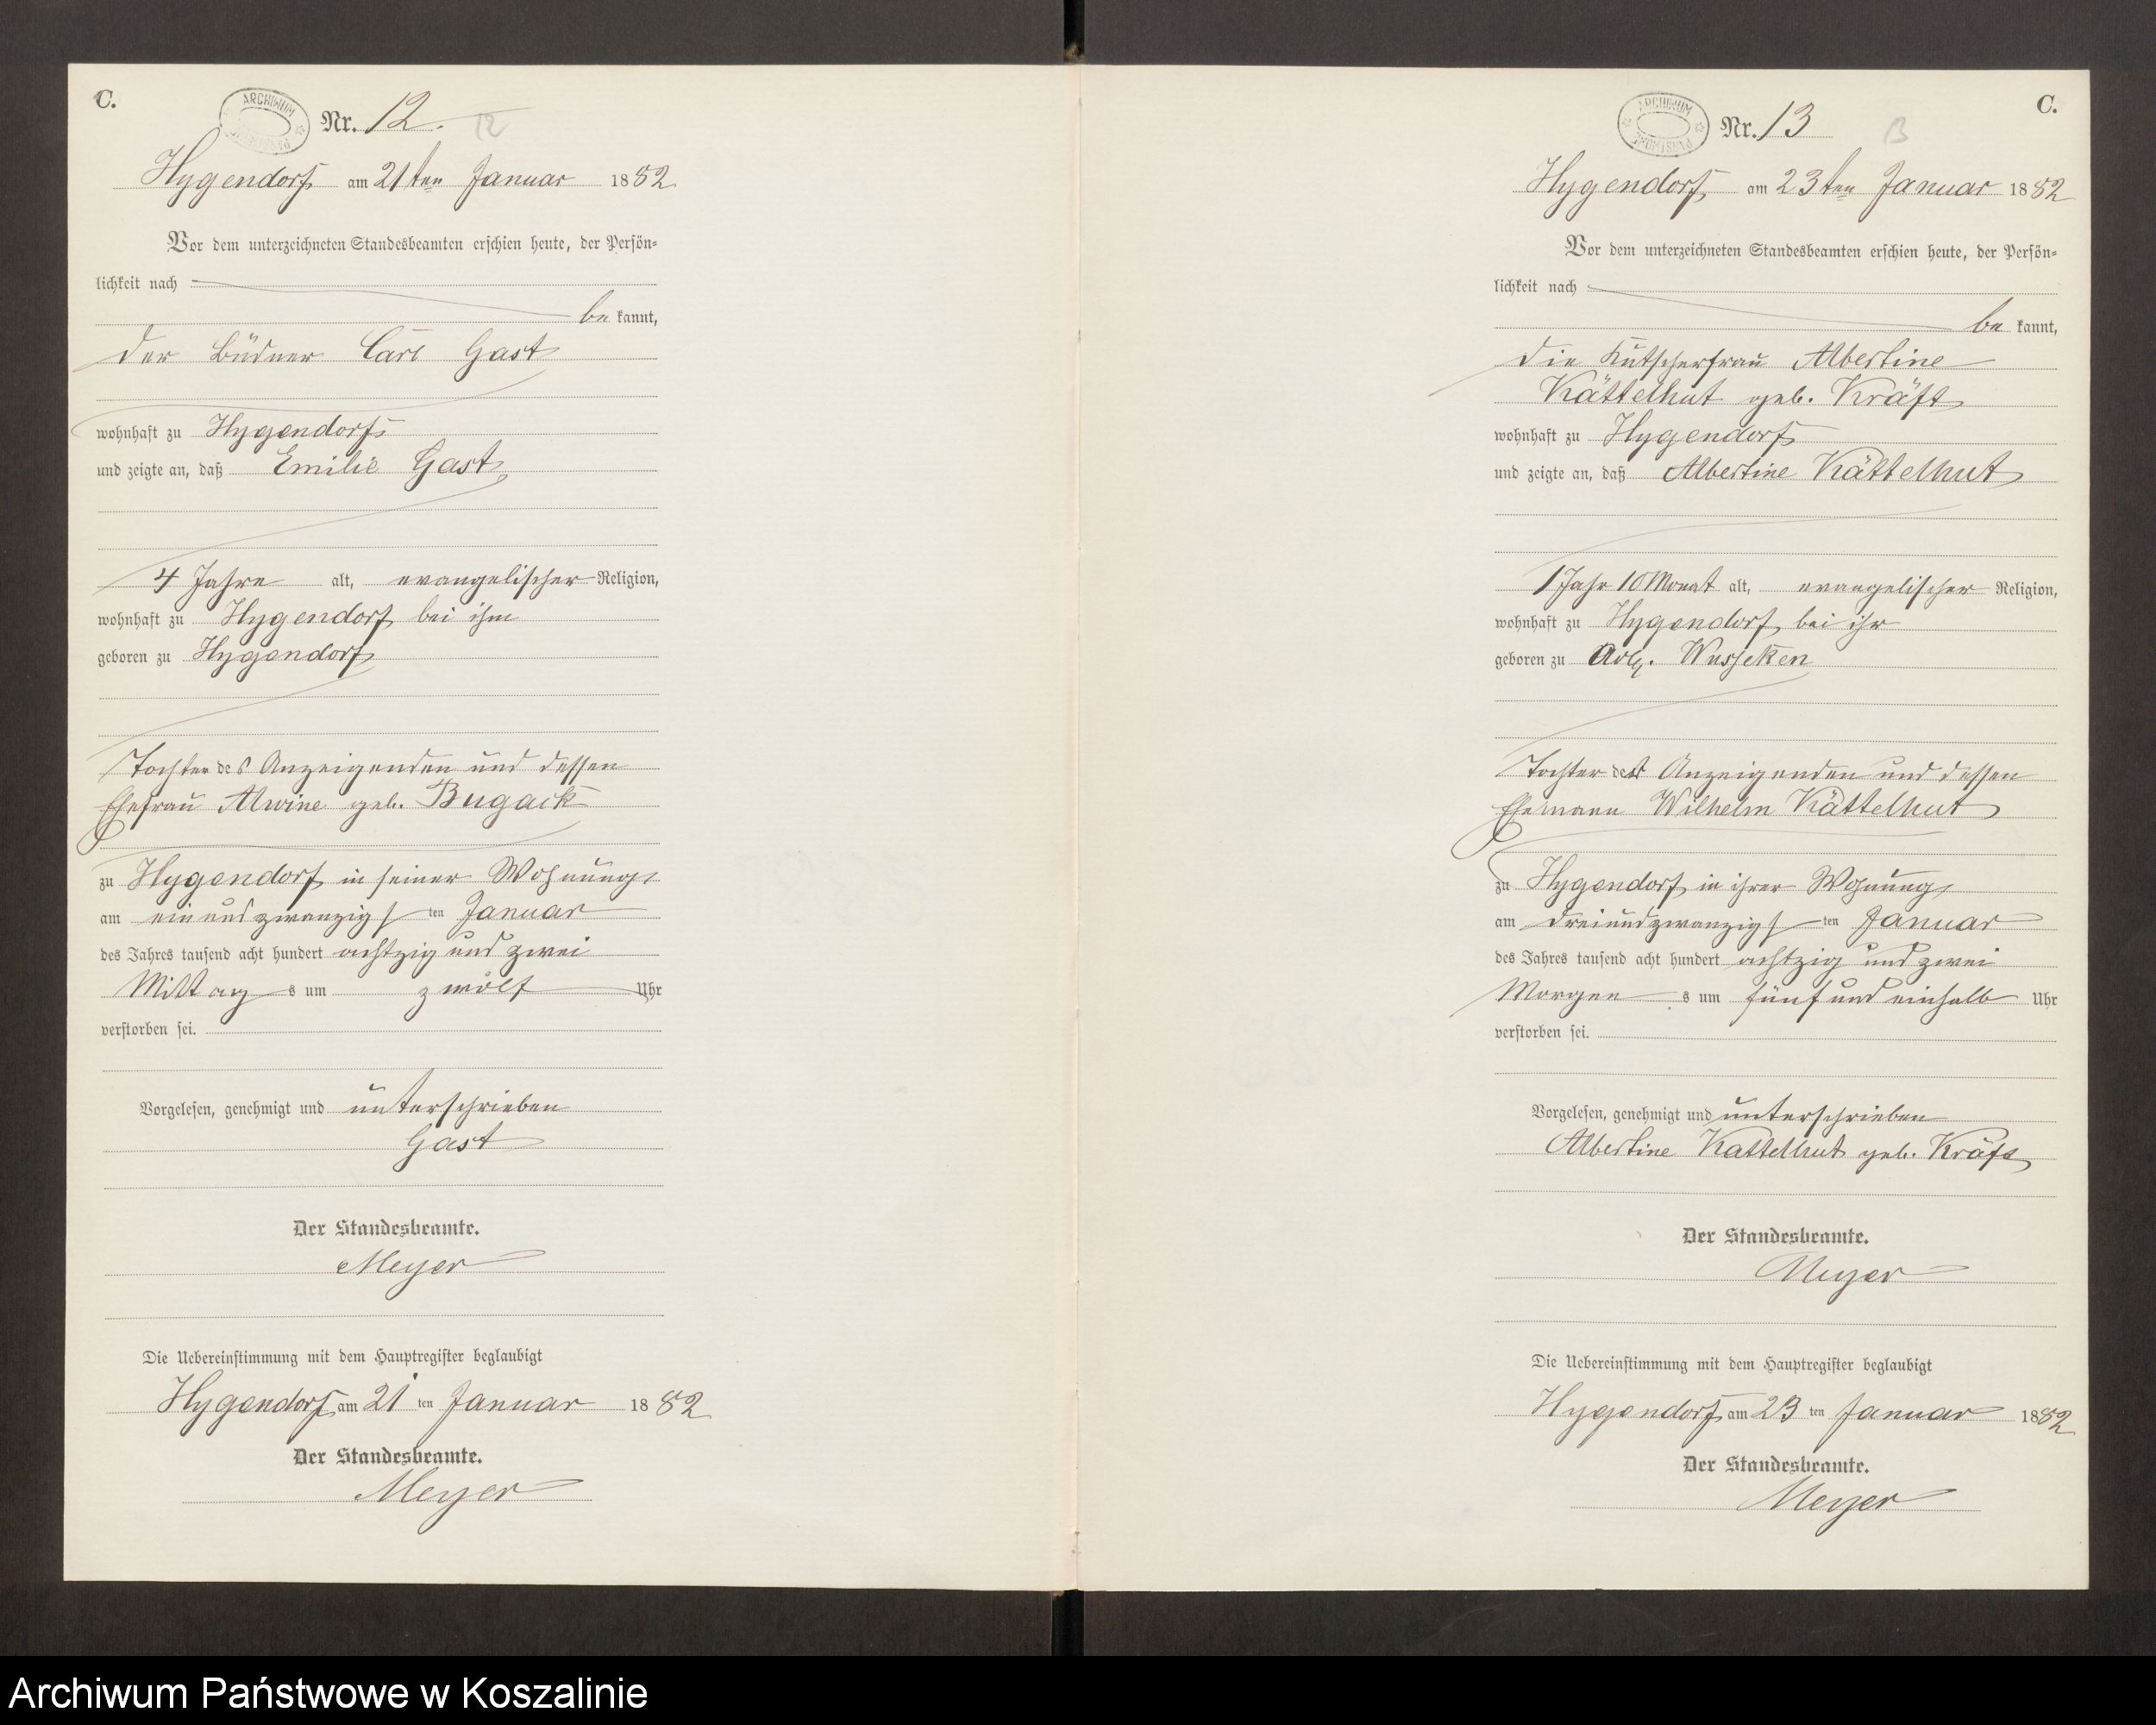 C.
ARCHIWUM
Nr. 12. 12
Hygendorf am 21ten Januar 1882
Vor dem unterzeichneten Standesbeamten erschien heute, der Persön-
lichkeit nach
be kannt,
der Büdner Carl Gast
wohnhaft zu Hygendorf
und zeigte an, daß Emilie Gast
4 Jahre alt, evangelischer Religion,
wohnhaft zu Hygendorf bei ihm
geboren zu Hygendorf
Tochter des Anzeigenden und dessen
Ehefrau Alwine geb. Bugack
zu Hygendorf in seiner Wohnung
am einundzwanzigsten Januar
des Jahres tausend acht hundert achtzig und zwei
Mittags um zwölf Uhr
verstorben sei.
Vorgelesen, genehmigt und unterschrieben
Gast
Der Standesbeamte.
Meyer
Die Uebereinstimmung mit dem Hauptregister beglaubigt
Hygendorf am 21ten Januar 1882
Der Standesbeamte.
Meyer
C.
ARCHIWUM
Nr. 13 13
Hygendorf am 23ten Januar 1882
Vor dem unterzeichneten Standesbeamten erschien heute, der Persön-
lichkeit nach
be kannt,
die Kutscherfrau Albertine
Kättelhut geb. Kräft
wohnhaft zu Hygendorf
und zeigte an, daß Albertine Kättelhut
1 Jahr 10 Monat alt, evangelischer Religion,
wohnhaft zu Hygendorf bei ihr
geboren zu Adlg. Wusseken
Tochter der Anzeigenden und dessen
Ehemann Wilhelm Kättelhut
zu Hygendorf in ihrer Wohnung
am dreiundzwanzigsten Januar
des Jahres tausend acht hundert achtzig und zwei
Morgens um fünf und einhalb Uhr
verstorben sei.
Vorgelesen, genehmigt und unterschrieben
Albertine Kattelhut geb. Kräft
Der Standesbeamte.
Meyer
Die Uebereinstimmung mit dem Hauptregister beglaubigt
Hygendorf am 23ten Januar 1882
Der Standesbeamte.
Meyer
Archiwum Państwowe w Koszalinie